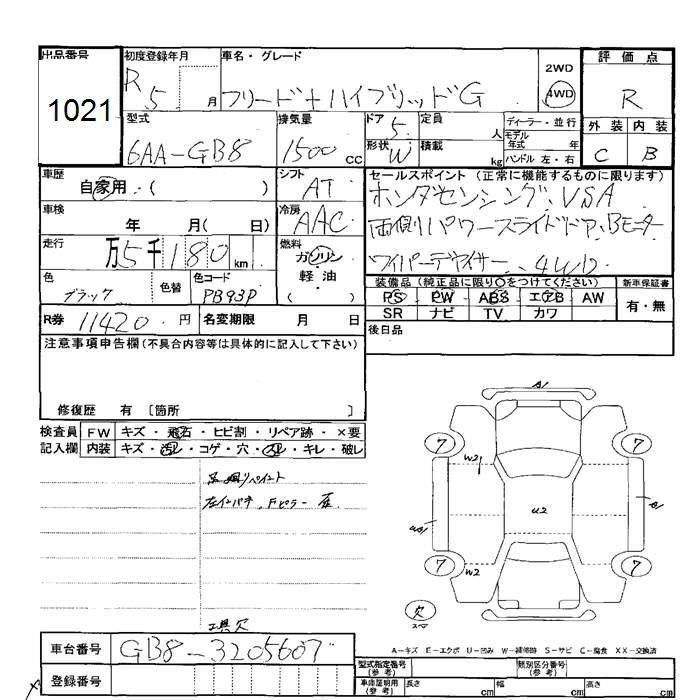 出品番号 初度登録年月 車名・グレード 評価点
1021 R 5 月 フリード+ハイブリッドG 2WD 4WD R
型式 排気量 ドア 定員 ディーラー・並行 外装 内装
6AA-GB8 1500 cc 5 人 モデル年式 年 C B
形状 W 積載 kg ハンドル 左・右
車歴 シフト セールスポイント (正常に機能するものに限ります)
自家用・( ) AT ホンダセンシング、VSA
車検 冷房 両側パワースライドドア、Bモニター
年 月( 日) AAC ワイパーデアイサー、4WD
走行 燃料
万5千180km ガソリン
軽・油
( )
色 色替 色コード 装備品(純正品に限り〇をつけてください) 新車保証書
ブラック PB93P PS PW ABS エアB AW 有・無
SR ナビ TV カワ
R券 11420.円 名変期限 月 日 後日品
注意事項申告欄(不具合内容等は具体的に記入して下さい)
修復歴 有 〔箇所 〕
検査員 FW キズ・飛石・ヒビ割・リペア跡・×要
記入欄 内装 キズ・汚レ・コゲ・穴・スレ・キレ・破レ
足廻リペイント
左インパネ、Fピラー
工具欠
A1
7 7
W2
U2
A1
7 7
W2
欠
スペア
A-キズ E-エクボ U-凹み W-補修跡 S-サビ C-腐食 XX-交換済
車台番号 GB8-3205607
登録番号
型式指定番号(参考) 類別区分番号(参考)
車庫証明用(参考) 長さ cm 幅 cm 高さ cm